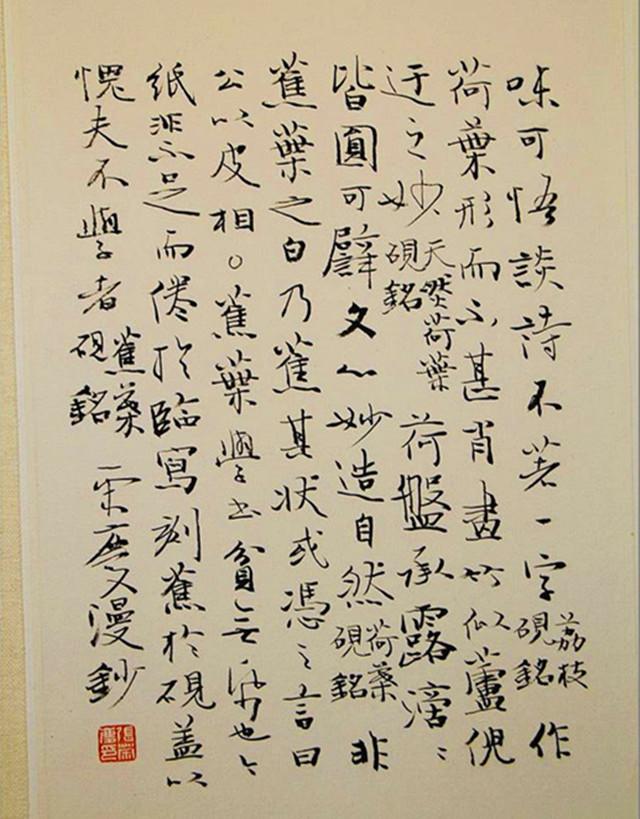 味可悟談詩不著一字荔枝硯銘作
荷葉形而不甚肖畫竹似蘆倪
迂之妙天然荷葉硯銘荷盤承露滴〻
皆圓可譬文心妙造自然荷葉硯銘非
蕉葉之白乃蕉其狀或憑之言曰
公以皮相○蕉葉學書貧無帋也〻
紙非不足而倦於臨寫刻蕉於硯蓋以
愧夫不學者蕉葉硯銘漫鈔
張榮慶印